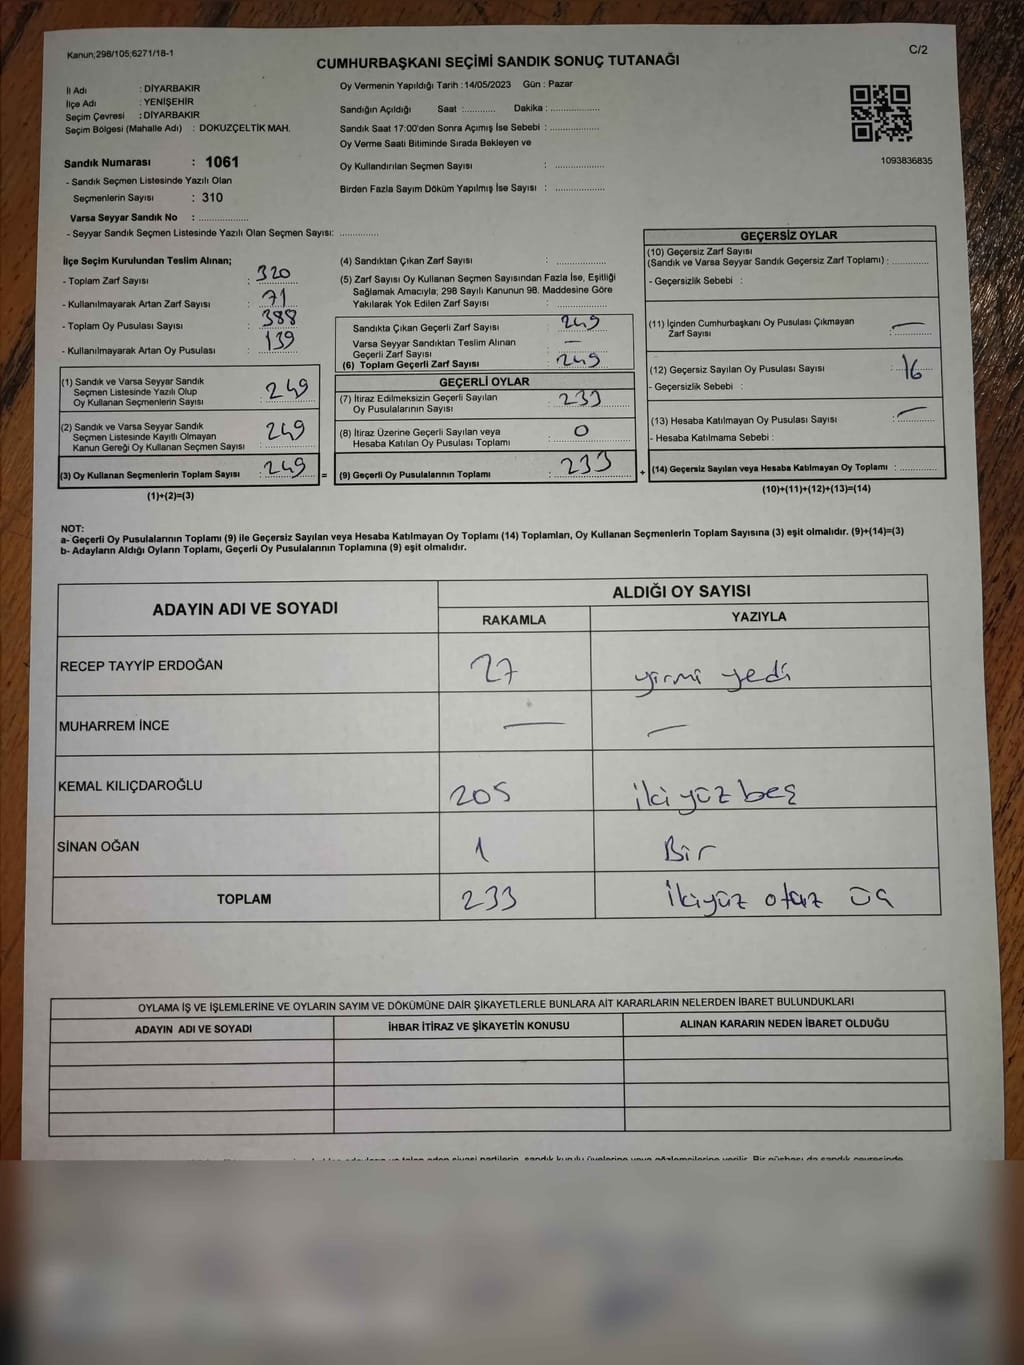 Kanun;298/105;6271/18-1
C/2
CUMHURBAŞKANI SEÇİMİ SANDIK SONUÇ TUTANAĞI
İl Adı : DİYARBAKIR
İlçe Adı : YENİŞEHİR
Seçim Çevresi : DİYARBAKIR
Seçim Bölgesi (Mahalle Adı) : DOKUZÇELTİK MAH.
Oy Vermenin Yapıldığı Tarih : 14/05/2023 Gün : Pazar
Sandığın Açıldığı Saat :........... Dakika : ................
Sandık Saat 17:00'den Sonra Açımış İse Sebebi : ................
Oy Verme Saati Bitiminde Sırada Bekleyen ve
Oy Kullandırılan Seçmen Sayısı : ................
Birden Fazla Sayım Döküm Yapılmış İse Sayısı : ................
1093836835
Sandık Numarası : 1061
- Sandık Seçmen Listesinde Yazılı Olan
Seçmenlerin Sayısı : 310
Varsa Seyyar Sandık No : ................
- Seyyar Sandık Seçmen Listesinde Yazılı Olan Seçmen Sayısı: ............
İlçe Seçim Kurulundan Teslim Alınan;
- Toplam Zarf Sayısı : 320
- Kullanılmayarak Artan Zarf Sayısı : 71
- Toplam Oy Pusulası Sayısı : 388
- Kullanılmayarak Artan Oy Pusulası : 139
(1) Sandık ve Varsa Seyyar Sandık
Seçmen Listesinde Yazılı Olup
Oy Kullanan Seçmenlerin Sayısı : 249
(2) Sandık ve Varsa Seyyar Sandık
Seçmen Listesinde Kayıtlı Olmayan
Kanun Gereği Oy Kullanan Seçmen Sayısı : 249
(3) Oy Kullanan Seçmenlerin Toplam Sayısı : 249 =
(1)+(2)=(3)
(4) Sandıktan Çıkan Zarf Sayısı : ................
(5) Zarf Sayısı Oy Kullanan Seçmen Sayısından Fazla İse, Eşitliği
Sağlamak Amacıyla; 298 Sayılı Kanunun 98. Maddesine Göre
Yakılarak Yok Edilen Zarf Sayısı : ................
Sandıkta Çıkan Geçerli Zarf Sayısı : 249
Varsa Seyyar Sandıktan Teslim Alınan
Geçerli Zarf Sayısı : —
(6) Toplam Geçerli Zarf Sayısı : 249
GEÇERLİ OYLAR
(7) İtiraz Edilmeksizin Geçerli Sayılan
Oy Pusulalarının Sayısı : 233
(8) İtiraz Üzerine Geçerli Sayılan veya
Hesaba Katılan Oy Pusulası Toplamı : 0
(9) Geçerli Oy Pusulalarının Toplamı : 233 +
GEÇERSİZ OYLAR
(10) Geçersiz Zarf Sayısı
(Sandık ve Varsa Seyyar Sandık Geçersiz Zarf Toplamı) : ............
- Geçersizlik Sebebi :
(11) İçinden Cumhurbaşkanı Oy Pusulası Çıkmayan
Zarf Sayısı : —
(12) Geçersiz Sayılan Oy Pusulası Sayısı : 16
- Geçersizlik Sebebi :
(13) Hesaba Katılmayan Oy Pusulası Sayısı : —
- Hesaba Katılmama Sebebi :
(14) Geçersiz Sayılan veya Hesaba Katılmayan Oy Toplamı : ............
(10)+(11)+(12)+(13)=(14)
NOT:
a- Geçerli Oy Pusulalarının Toplamı (9) ile Geçersiz Sayılan veya Hesaba Katılmayan Oy Toplamı (14) Toplamları, Oy Kullanan Seçmenlerin Toplam Sayısına (3) eşit olmalıdır. (9)+(14)=(3)
b- Adayların Aldığı Oyların Toplamı, Geçerli Oy Pusulalarının Toplamına (9) eşit olmalıdır.
ADAYIN ADI VE SOYADI
ALDIĞI OY SAYISI
RAKAMLA YAZIYLA
RECEP TAYYİP ERDOĞAN 27 yirmi yedi
MUHARREM İNCE — —
KEMAL KILIÇDAROĞLU 205 iki yüz beş
SİNAN OĞAN 1 Bir
TOPLAM 233 İkiyüz otuz üç
OYLAMA İŞ VE İŞLEMLERİNE VE OYLARIN SAYIM VE DÖKÜMÜNE DAİR ŞİKAYETLERLE BUNLARA AİT KARARLARIN NELERDEN İBARET BULUNDUKLARI
ADAYIN ADI VE SOYADI İHBAR İTİRAZ VE ŞİKAYETİN KONUSU ALINAN KARARIN NEDEN İBARET OLDUĞU